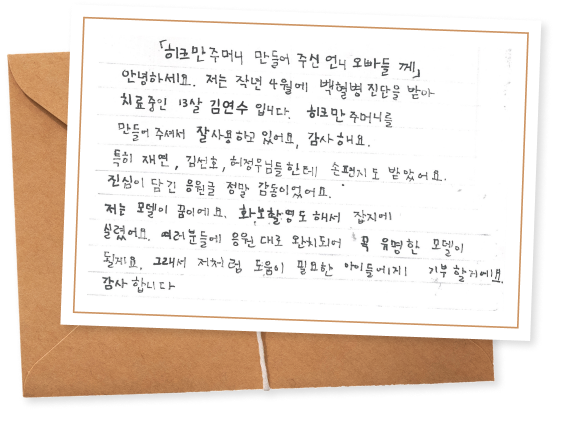 「히크만주머니 만들어 주신 언니 오빠들 께」
안녕하세요. 저는 작년 4월에 백혈병 진단을 받아
치료중인 13살 김연수 입니다. 히크만 주머니를
만들어 주셔서 잘사용하고 있어요, 감사해요.
특히 재연, 김선호, 허정우님들한테 손편지도 받았어요.
진심이 담긴 응원글 정말 감동이었어요.
저는 모델이 꿈이에요. 화보촬영도 해서 잡지에
실렸어요. 여러분들에 응원 대로 완치되어 꼭 유명한 모델이
될게요. 그래서 저처럼 도움이 필요한 아이들에게 기부할거에요.
감사합니다